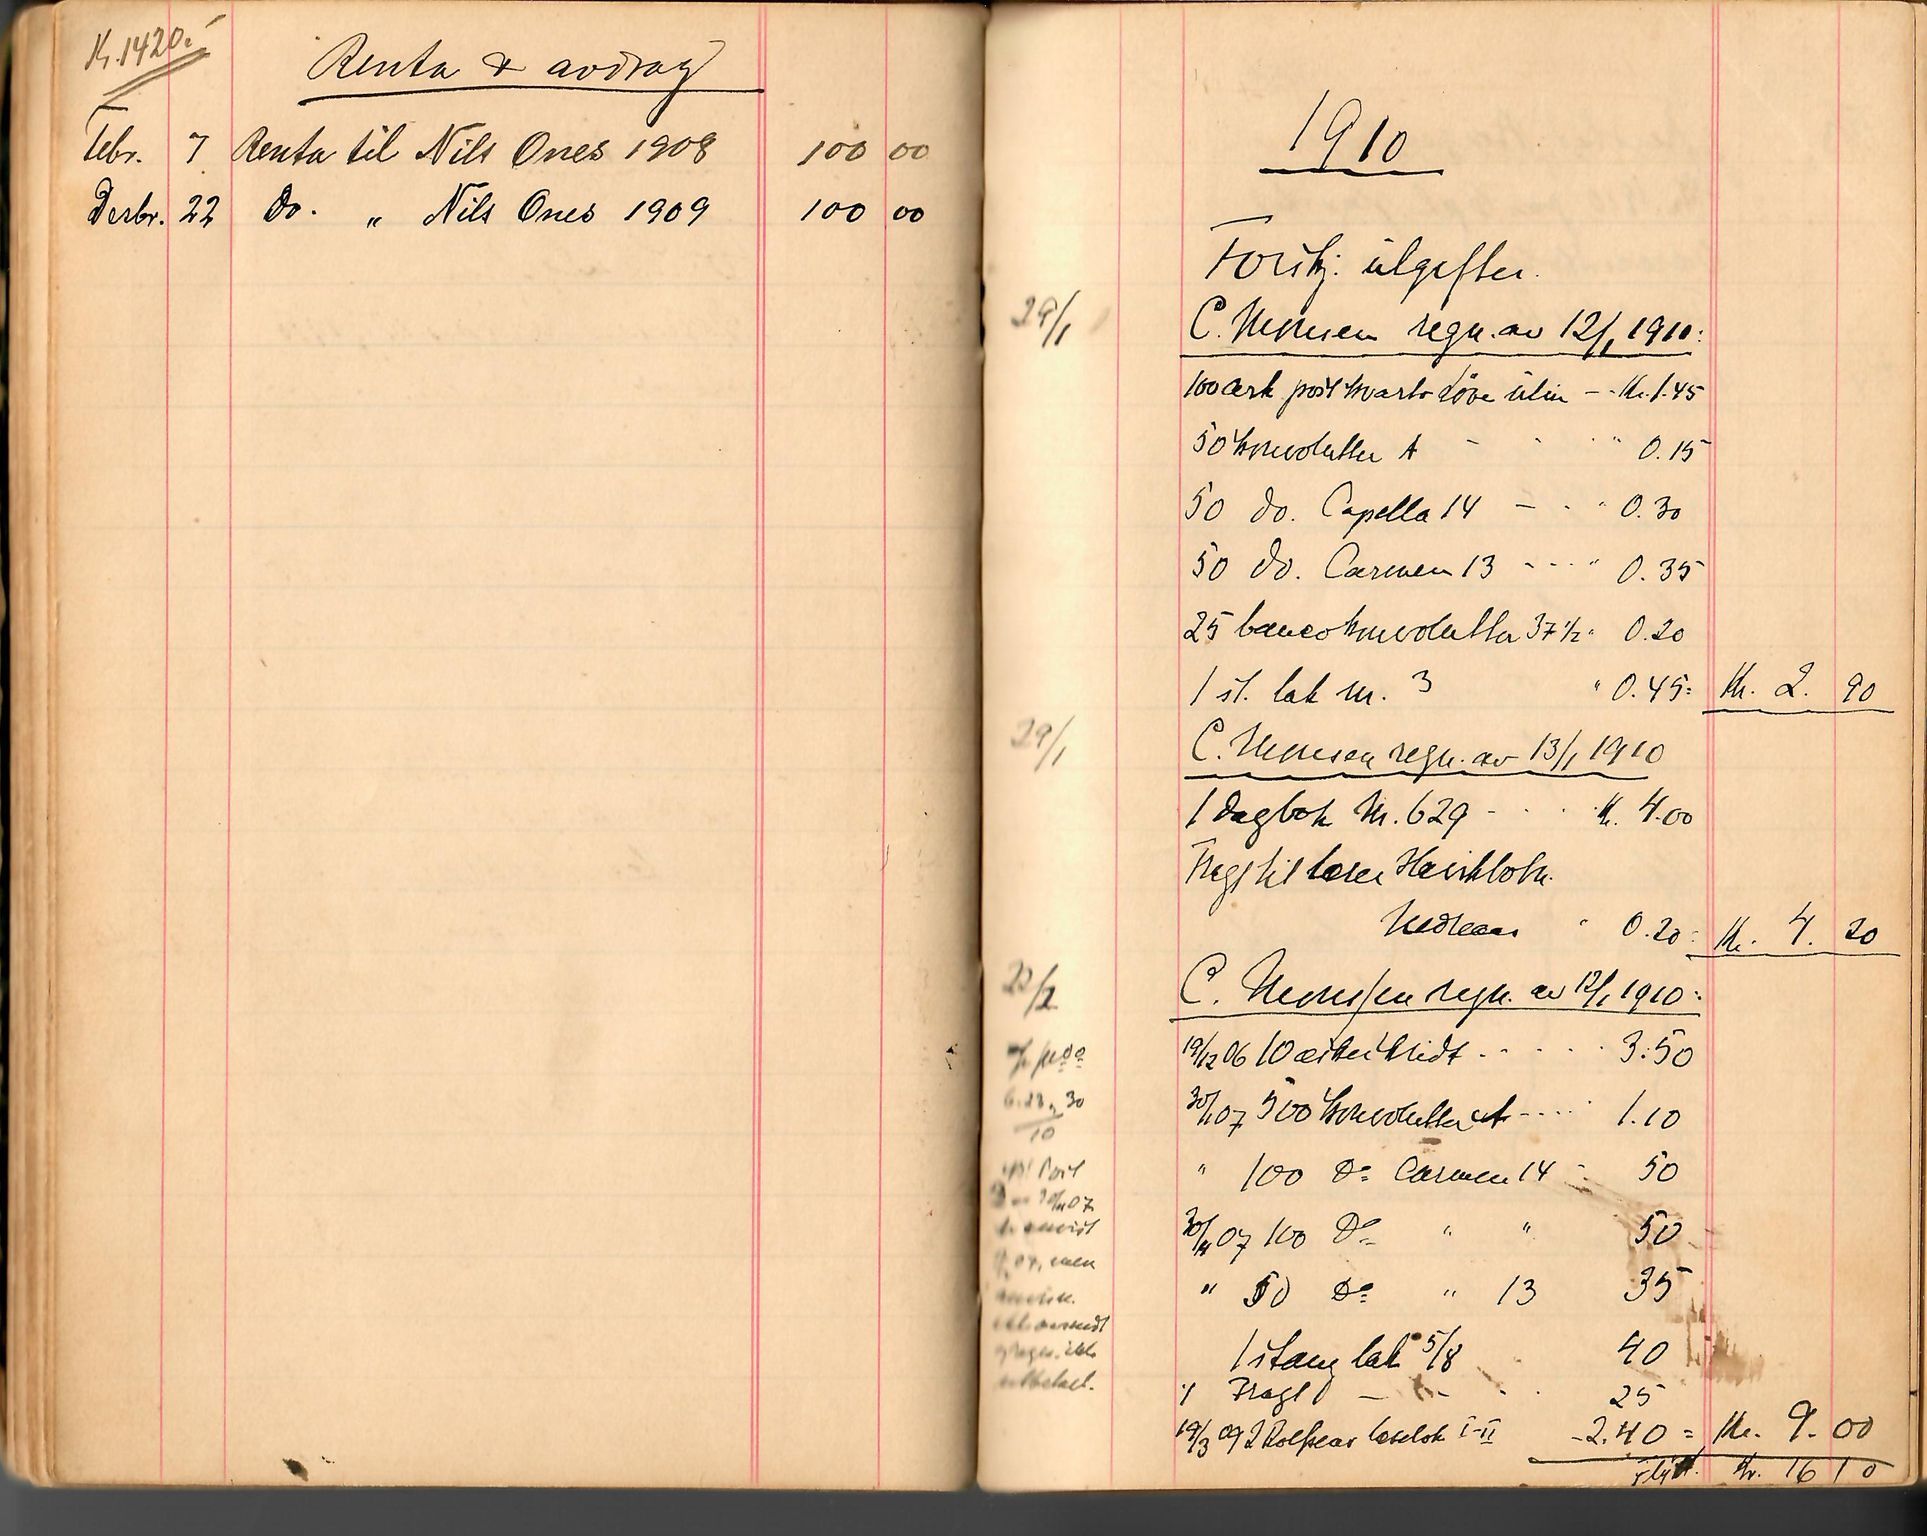 Kr. 1420.-
Renta & avdrag
Febr. 7 Renta til Nils Ones 1908 100 00
Desbr. 22 Do. " Nils Ones 1909 100 00
1910
Forskj. utgifter.
29/1 C. Monsen regn. av 12/1 1910:
100 ark post kvarto Løve ulin - - Kr. 1.45
50 konvolutter A - - " 0.15
50 do. Capella 14 - - " 0.30
50 do. Carmen 13 - - - " 0.35
25 bancokonvolutter 37 1/2 " 0.20
1 st. lak nr. 3 " 0.45 = Kr. 2. 90
29/1 C. Monsen regn. av 13/1 1910
1 Dagbok Nr. 629 - - - Kr. 4.00
Fragt til lærer
Nedreaas " 0.20 = Kr. 4. 20
22/2 C. Monsen regn. av 12/1 1910:
19/12 06 10 æsker kridt - - - - - 3.50
30/1 07 500 konvolutter A - - - - 1.10
" 100 Do Carmen 14 - 50
30/11 07 100 Do " " 50
" 50 Do " 13 35
1 stang lak 5/8 40
" Fragt - - - 25
19/3 09 2 Rolfsens læsebok I-II - 2.40 = Kr. 9. 00
Flyt. Kr. 16 10
6.23 " 30
10